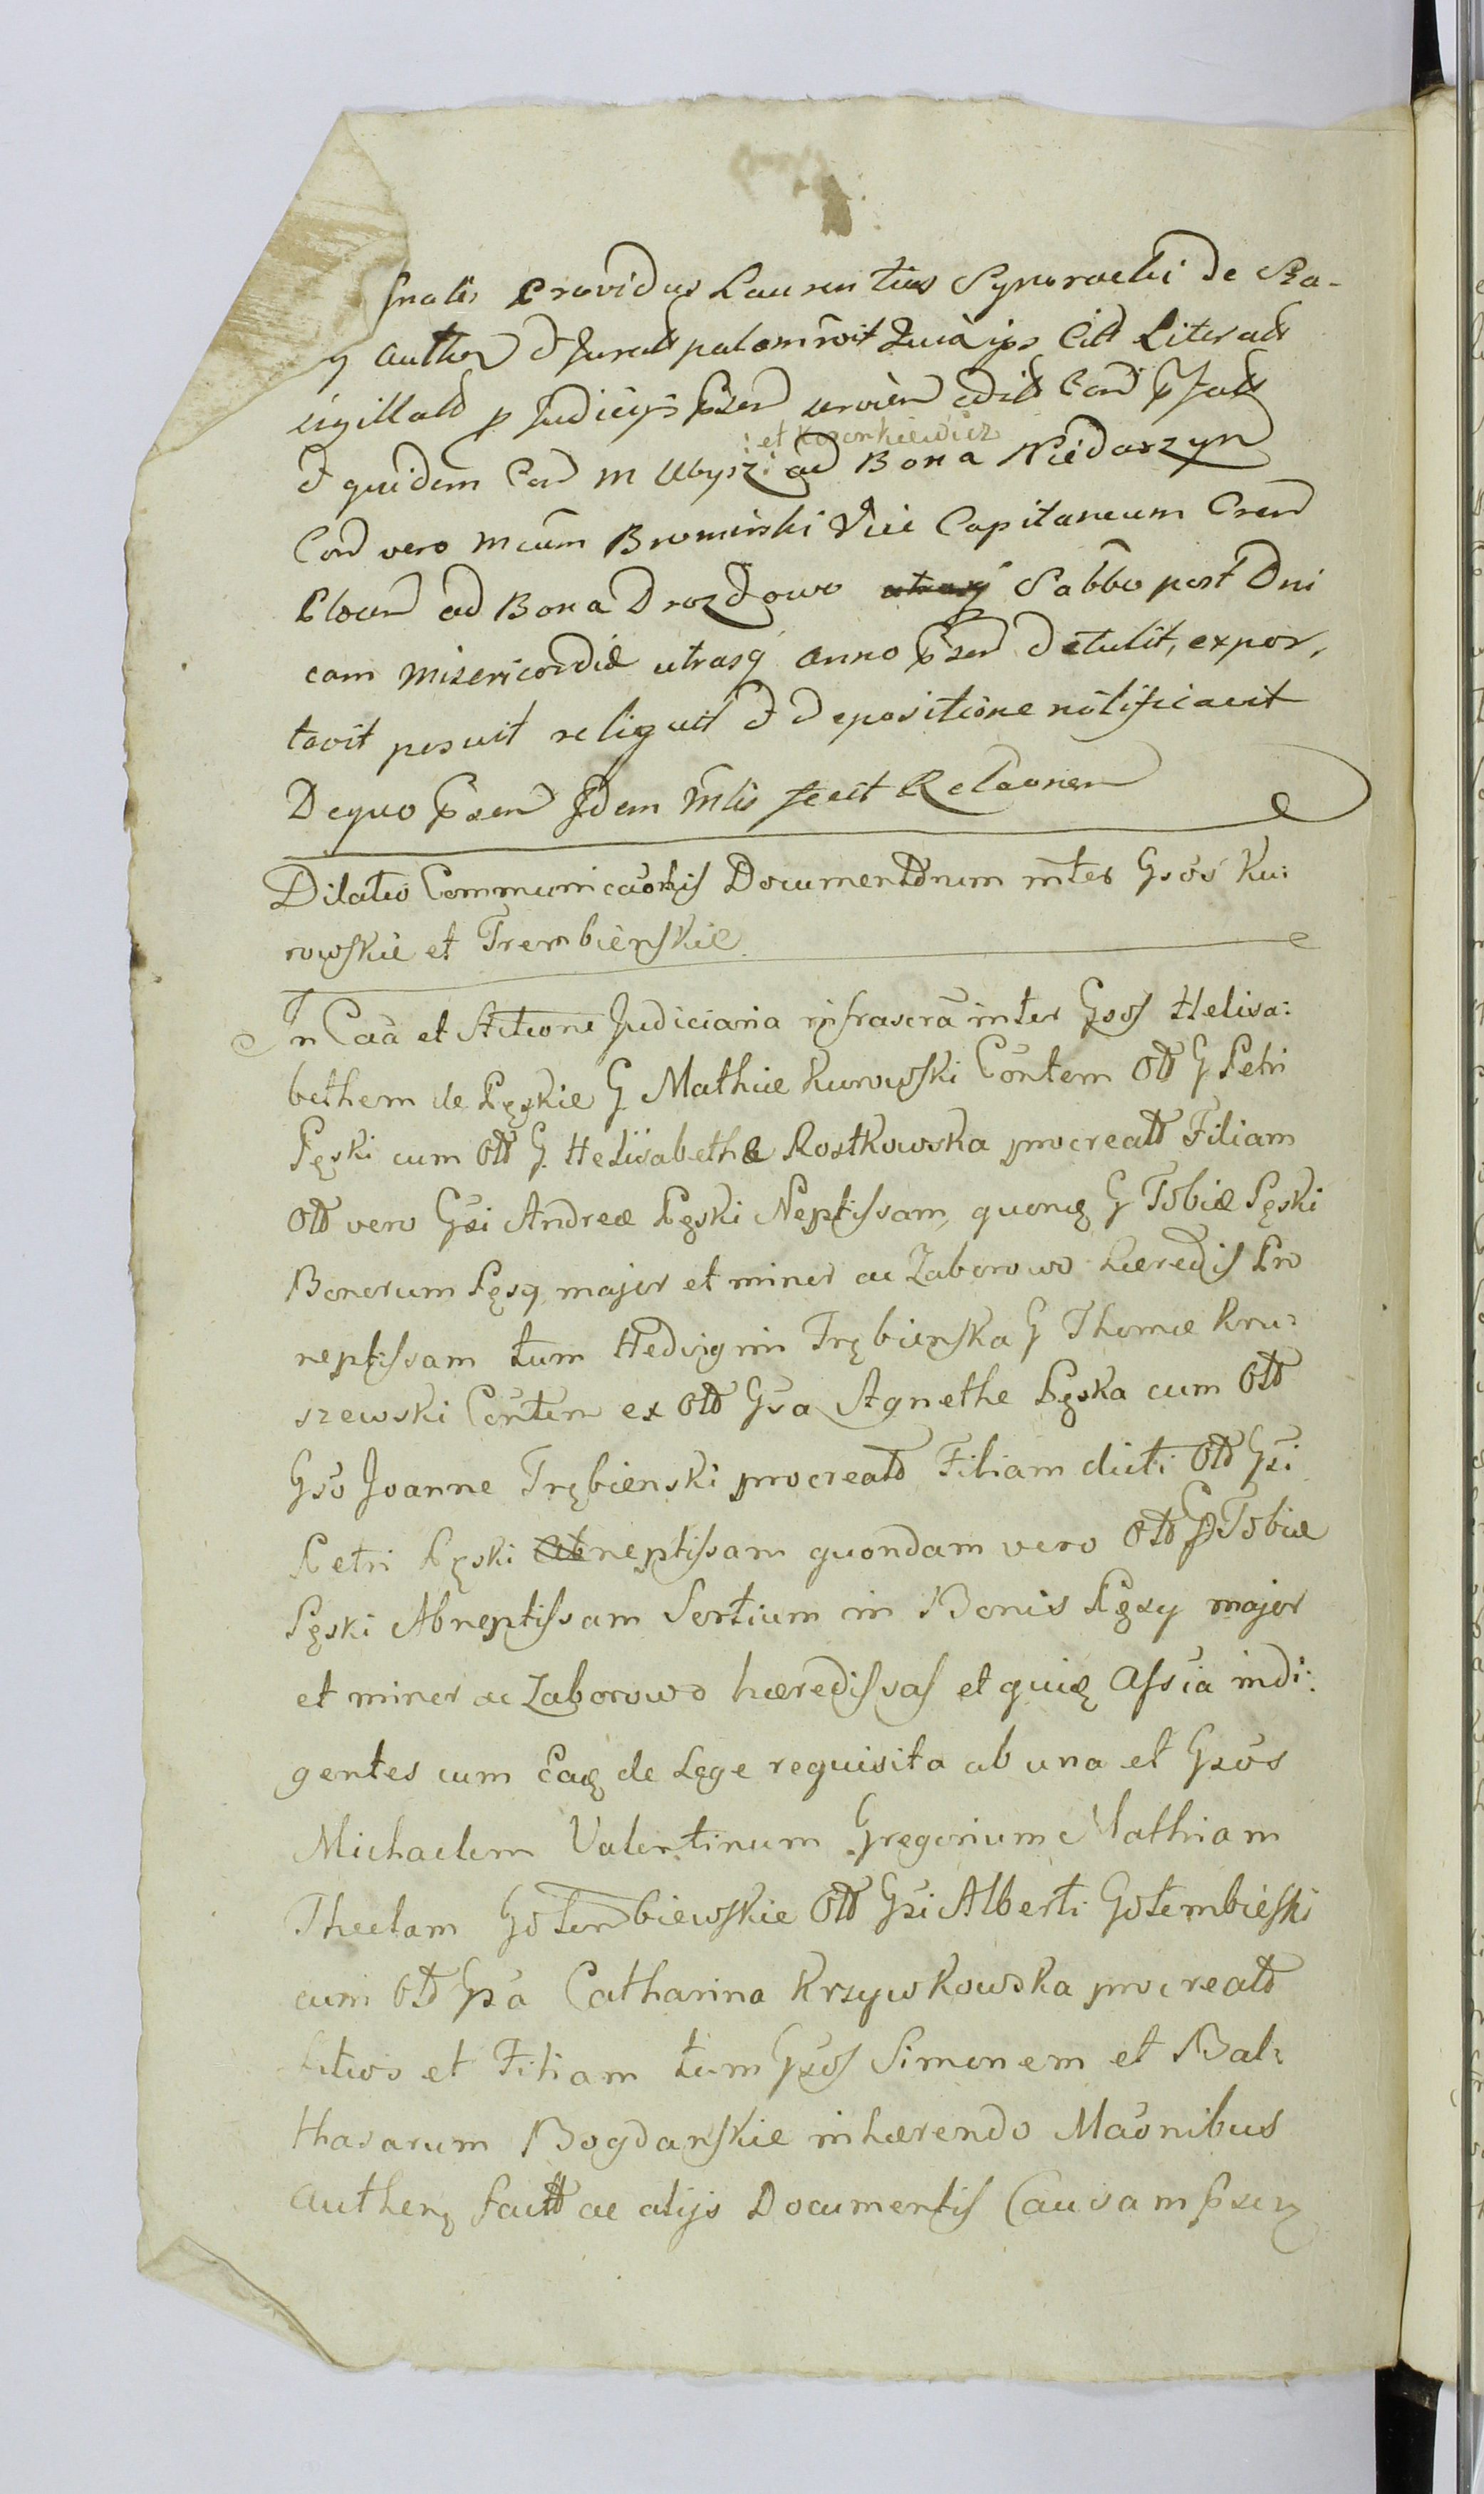 Providus Laurentius de
y author et Jurat palam Quia ips Citt Literatt
sigillatt p Judicijs Psen servien editt Con
et quidem Con M Ubysz :et Kozonkiewicz: ad Bona Niedarzyn
Con vero Mcum Brominski Vice Capitaneum Cren
Plocen ad Bona Drozdowo utrasq Sabbo post Dni
cam Misericordiæ utrasq anno Psen detulit, expor,
tavit posuit reliquit et de positione notificavit
De quo Psen Idem Mlis fecit Relaonem
Dilatio Communicaonis Documentorum inter Gsos Ku:
rowskie et Trembienskie
In Caa et Actione Judiciaria infrascra inter Gsos Helisa:
betham de Pęskie G Mathiæ Kurowski Contem Ott G Petri
Pęski cum Ott G. Helisabetha Rostkowska procreatt Filiam
Ott vero Gsi Andreæ Pęski Neptissam, quonq G Tobiæ Pęski
Bonorum Pęsy major et minor ac Zaborowo hæredis Pro
neptissam tum Hedvigim Trębienska G Thomæ Kru:
szewski Contem ex Ott Gsa Agnethe Pęska cum Ott
Gso Joanne Trębienski procreatt Filiam dicti Ott Gsi
Petri Pęski neptissam quondam vero Ott G Tobiæ
Pęski Abneptissam Sortium in Bonis Pęsy major
et minor ac Zaborowo hæredissas et quiq Assia indi:
gentes cum eaq de Lege requisita ab una et Gsos
Michaelem Valentinum Gregorium Mathiam
Theclam Gołembiewskie Ott Gsi Alberti Gołembieski
cum Ott Gsa Catharina Krzywkowska procreatt
Filios et Filiam tum Gsos Simonem et Bal:
thasarum Bogdanskie inhærendo Maonibus
Authen factt ac alijs Documentis Causam Psen